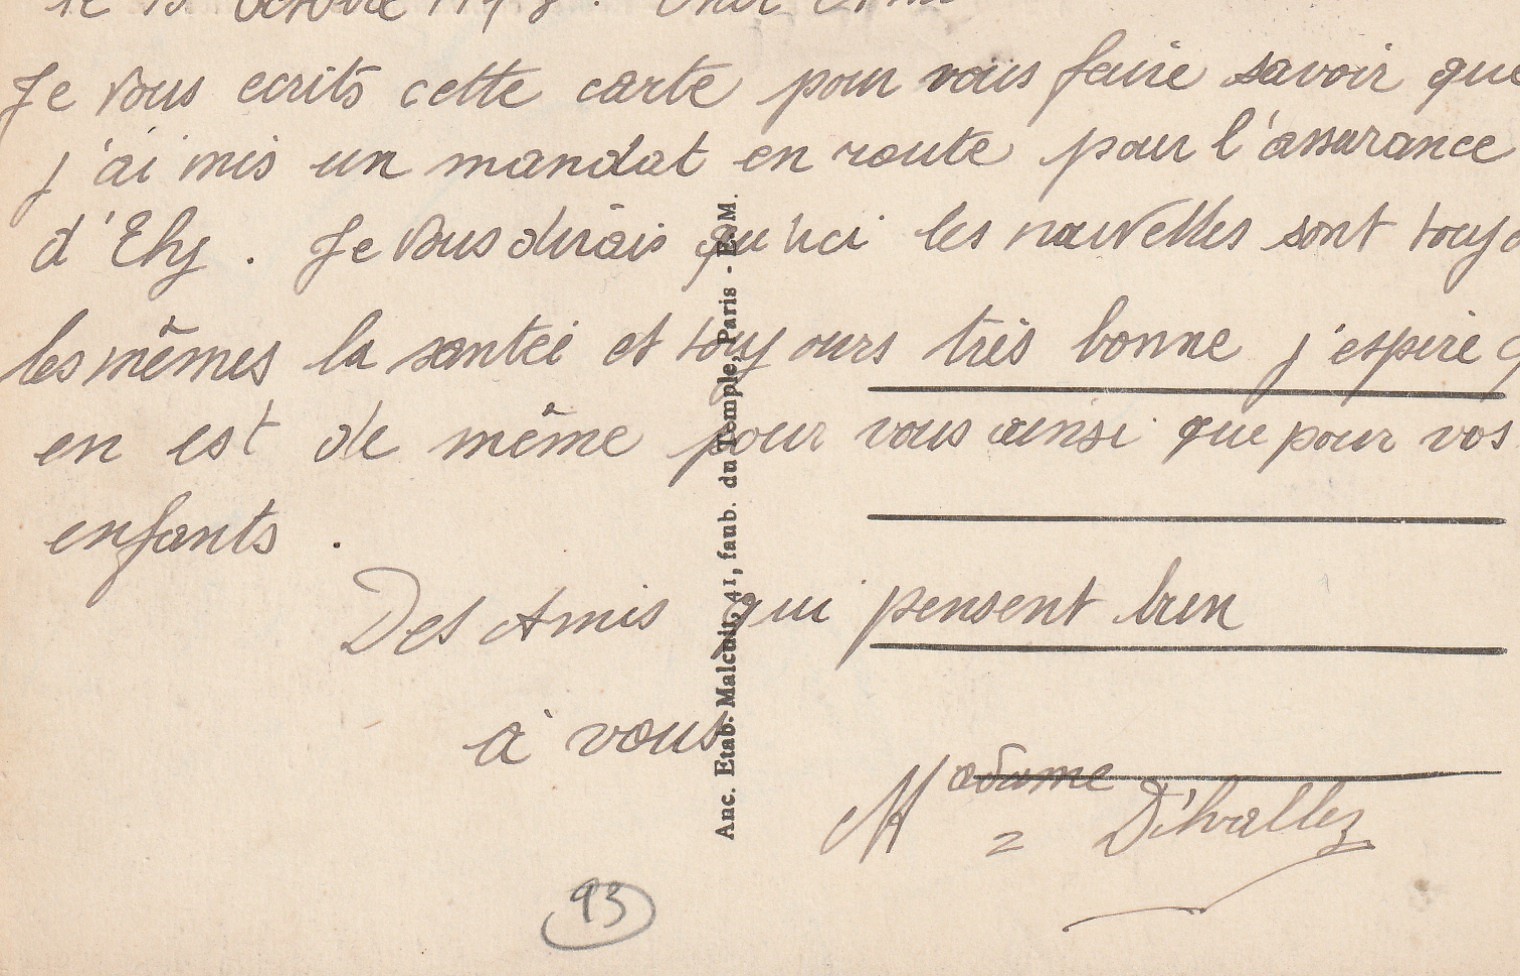 le 15 Octobre
Je vous ecrits cette carte pour vous faire savoir que
j'ai mis un mandat en route pour l'assurance
d'Ely. Je vous dirais qu'ici les nouvelles sont toujo
les mêmes la santéi et toujours très bonne j'espère q
en est de même pour vous ainsi que pour vos
enfants.
Des Amis qui pensent bien
à vous
Madame
93
Anc. Etab. Malcuit, 41, faub. du Temple, Paris - E. M.